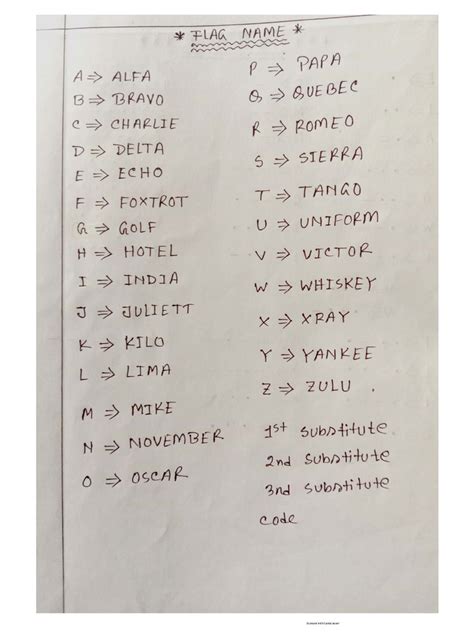 * FLAG NAME *
A ⇒ ALFA
B ⇒ BRAVO
C ⇒ CHARLIE
D ⇒ DELTA
E ⇒ ECHO
F ⇒ FOXTROT
G ⇒ GOLF
H ⇒ HOTEL
I ⇒ INDIA
J ⇒ JULIETT
K ⇒ KILO
L ⇒ LIMA
M ⇒ MIKE
N ⇒ NOVEMBER
O ⇒ OSCAR
P ⇒ PAPA
Q ⇒ QUEBEC
R ⇒ ROMEO
S ⇒ SIERRA
T ⇒ TANGO
U ⇒ UNIFORM
V ⇒ VICTOR
W ⇒ WHISKEY
X ⇒ XRAY
Y ⇒ YANKEE
Z ⇒ ZULU .
1st substitute
2nd substitute
3rd substitute
code